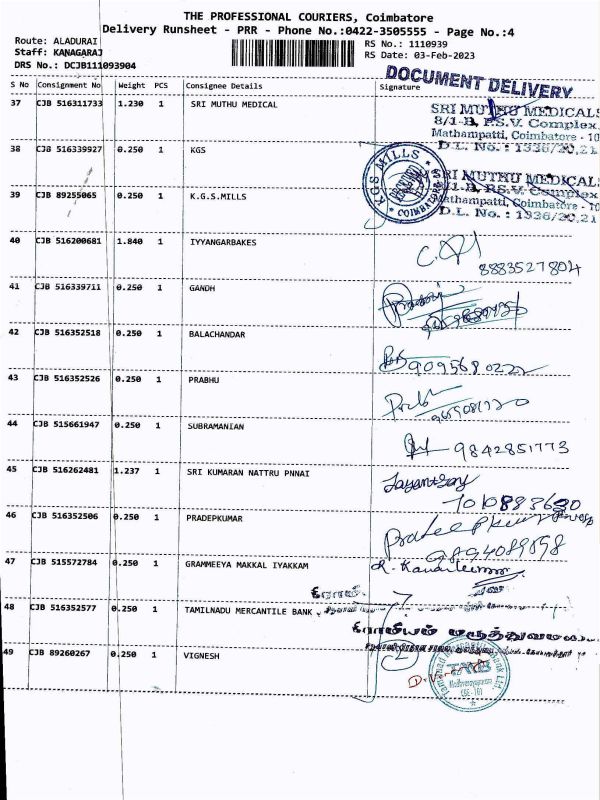 THE PROFESSIONAL COURIERS, Coimbatore
Delivery Runsheet - PRR - Phone No.:0422-3505555 - Page No.:4
Route: ALADURAI
Staff: KANAGARAJ
DRS No.: DCJB111093904
RS No.: 1110939
RS Date: 03-Feb-2023
DOCUMENT DELIVERY
S No Consignment No Weight PCS Consignee Details Signature
37 CJB 516311733 1.230 1 SRI MUTHU MEDICAL
SRI MUTHU MEDICALS
8/1-B, P.S.V. Complex
Mathampatti, Coimbatore - 10
D.L. No. : 1336/20,21
38 CJB 516339927 0.250 1 KGS
KGS MILLS
COIMBATORE
SRI MUTHU MEDICALS
8/1-B, P.S.V. Complex
Mathampatti, Coimbatore - 10
D.L. No. : 1336/20,21
39 CJB 89255065 0.250 1 K.G.S.MILLS
40 CJB 516200681 1.840 1 IYYANGARBAKES
8883527804
41 CJB 516339711 0.250 1 GANDH
42 CJB 516352518 0.250 1 BALACHANDAR
9095680222
43 CJB 516352526 0.250 1 PRABHU
44 CJB 515661947 0.250 1 SUBRAMANIAN
9842851773
45 CJB 516262481 1.237 1 SRI KUMARAN NATTRU PNNAI
46 CJB 516352506 0.250 1 PRADEPKUMAR
47 CJB 515572784 0.250 1 GRAMMEEYA MAKKAL IYAKKAM
48 CJB 516352577 0.250 1 TAMILNADU MERCANTILE BANK
49 CJB 89260267 0.250 1 VIGNESH
TMB